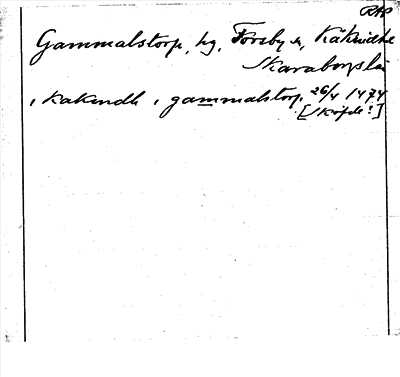 RAP
Gammalstorp, hg, Forsby sn, Kåkinds hd
Skaraborgs län
i kakindh i gammalstorp 26/4 1474
[Sköfde?]